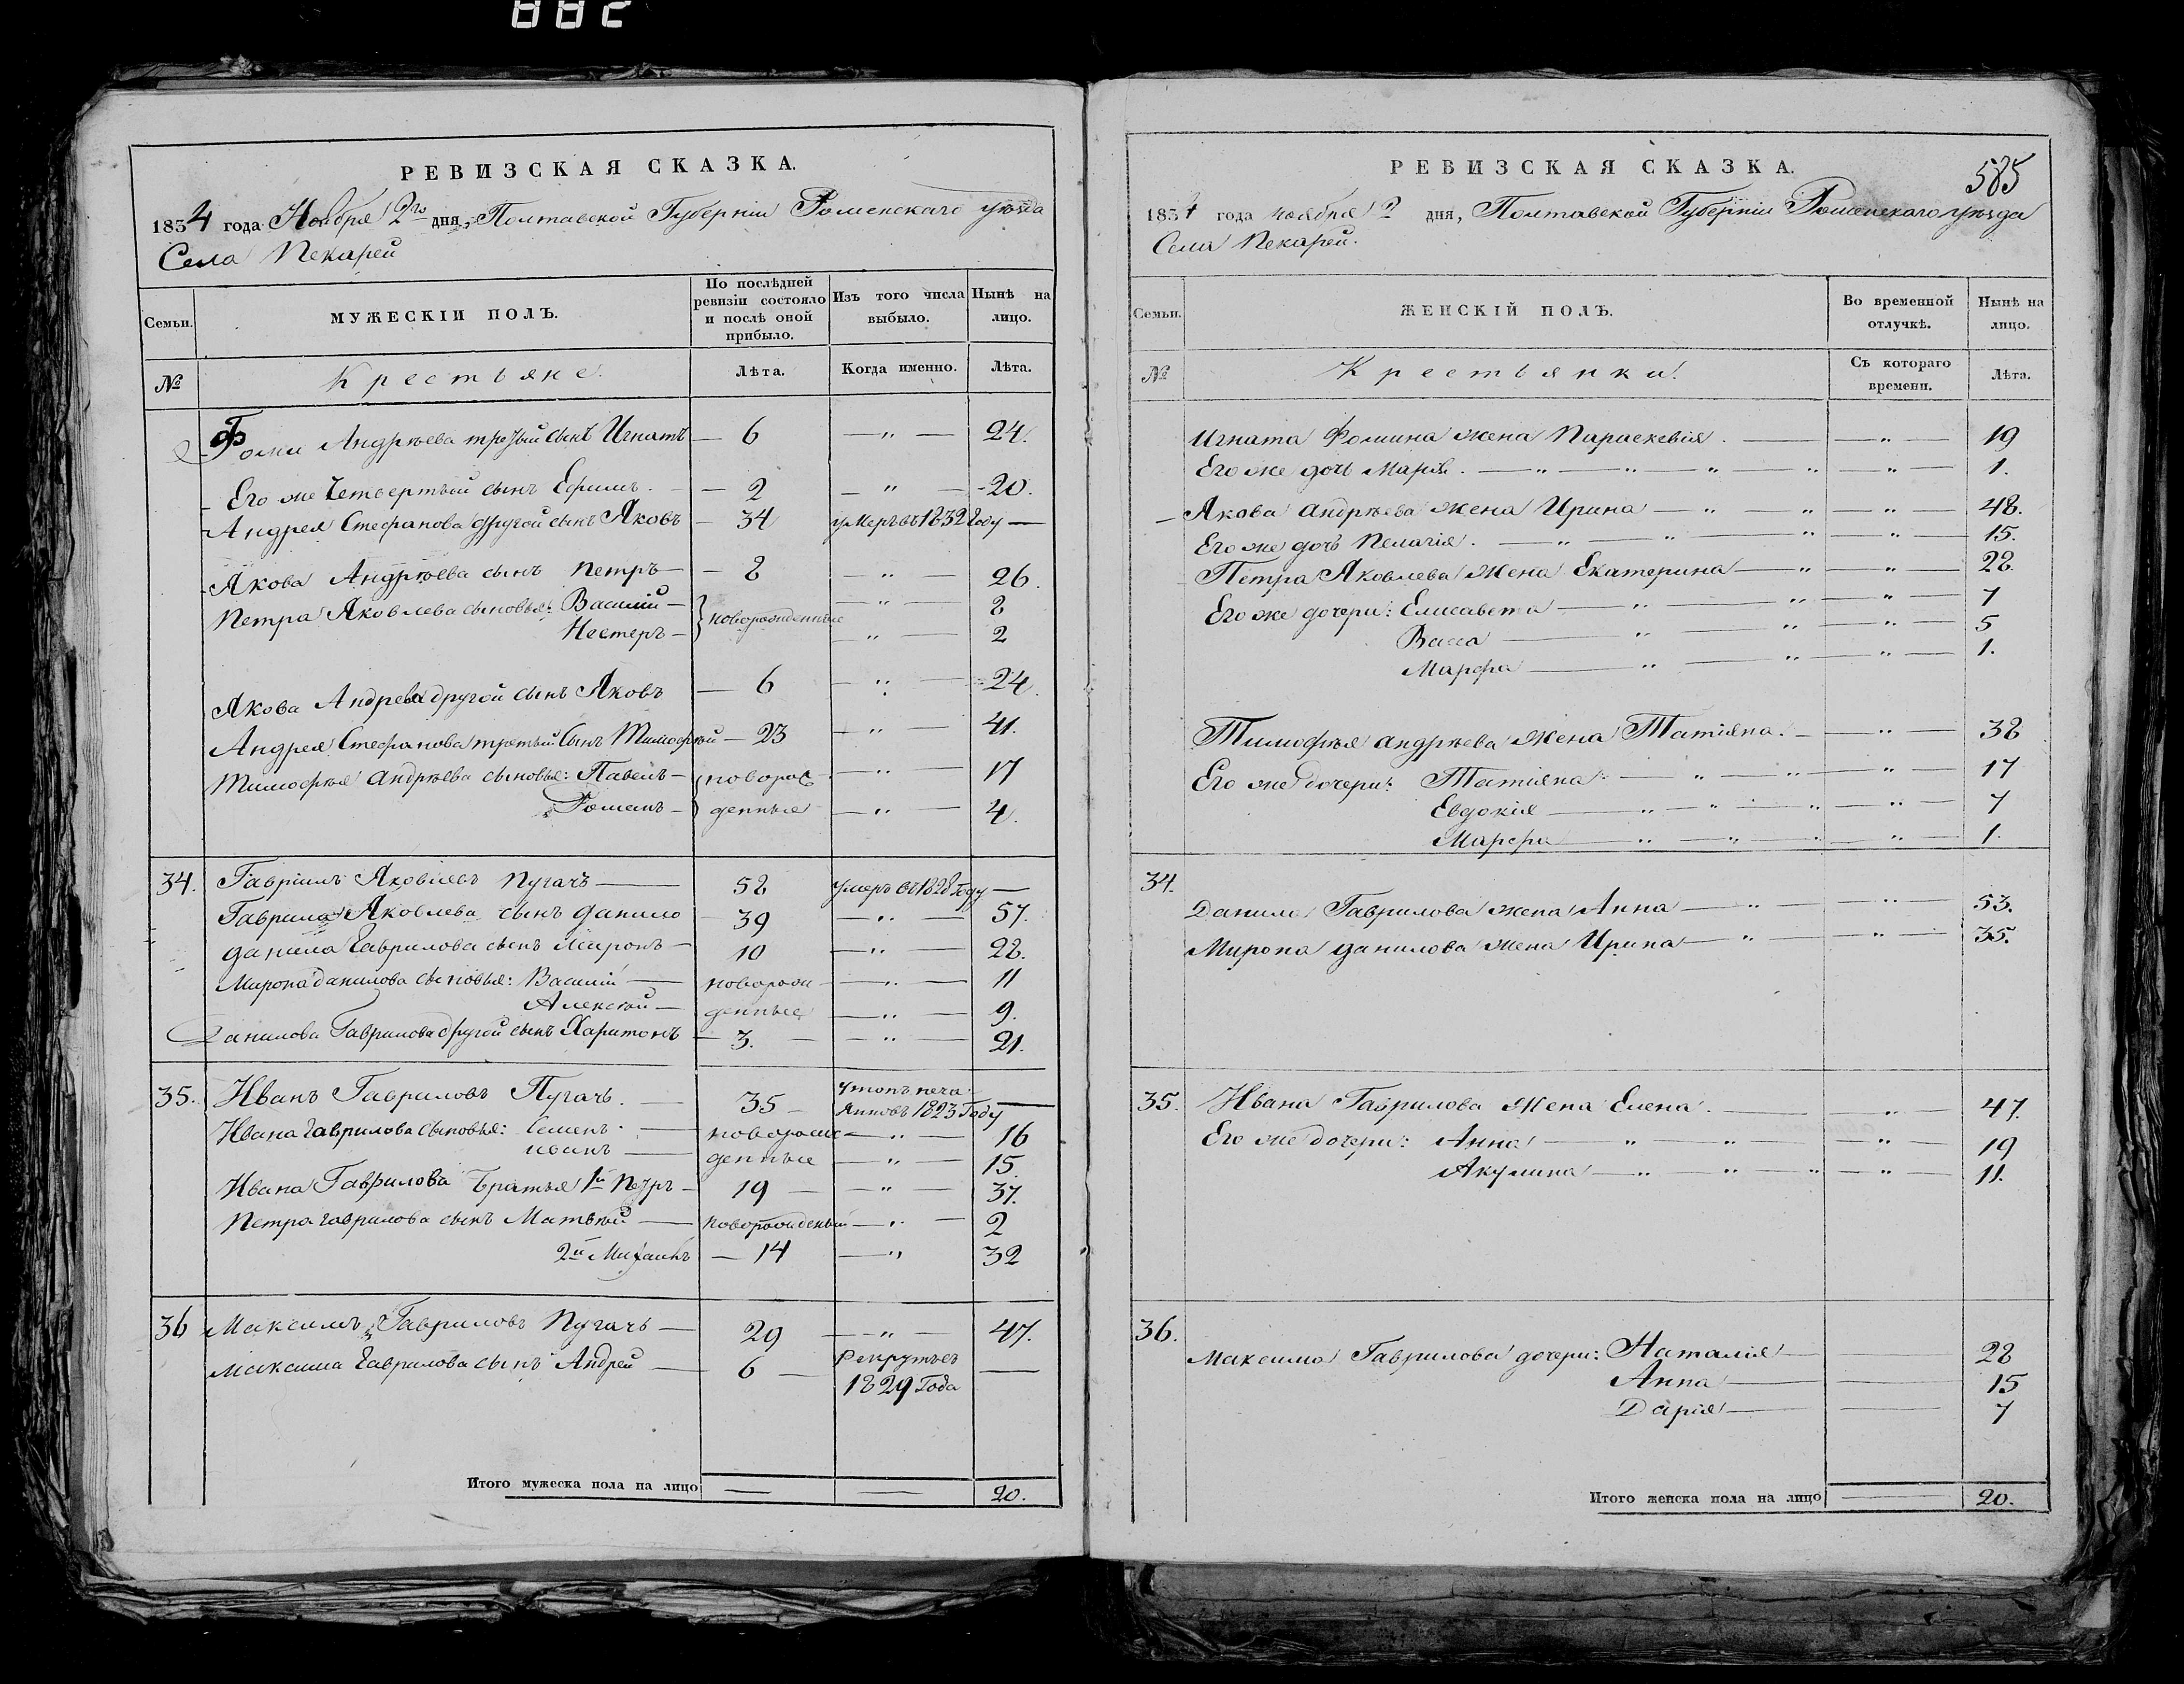 882
РЕВИЗСКАЯ СКАЗКА.
1834 года Ноября 2го дня, Полтавской Губерніи Роменскаго уѣзда
Села Пекарей
Семьи. МУЖЕСКІЙ ПОЛЪ. По послѣдней ревизіи состояло и послѣ оной прибыло. Изъ того числа выбыло. Нынѣ на лицо.
№ Крестьяне. Лѣта. Когда именно. Лѣта.
Фомы Андрѣева третій сынъ Игнатъ — 6 — " — 24.
Его же Четвертый сынъ Ефимъ. — 2 — " — 20.
Андрея Стефанова другой сынъ Яковъ — 34 умеръ въ 1832 Году —
Якова Андрѣева сынъ Петръ — 8 — " — 26.
Петра Яковлева сыновья: Василій — новорожденные — " — 8
Нестеръ — — " — 2
Якова Андрева другой сынъ Яковъ — 6 — " — 24.
Андрея Стефанова третый Сынъ Тимофѣй — 23 — " — 41.
Тимофѣя Андрѣева сыновья: Павелъ — новорож — " — 17
Романъ — денные — " — 4.
34. Гавріилъ Яковлевъ Пугачъ — 58 умеръ въ 1828 Году —
Гаврила Яковлева сынъ Данило — 39 — " — 57.
Данила Гаврилова сынъ Миронъ — 10 — " — 28.
Мирона Данилова сыновья: Василій — новорож — " — 11
Алексѣй — денные — " — 9.
Данилова Гаврилова другой сынъ Харитонъ — 3. — " — 21.
35. Иванъ Гавриловъ Пугачъ. — 35 — Утопъ неча
янновъ 1823 Году —
Ивана Гаврилова сыновья: Семенъ — новорож — " — 16
Иванъ — денные — " — 15
Ивана Гаврилова Братья 1й Петръ — 19 — " — 37.
Петра Гаврилова сынъ Матвѣй — новорожденый — " — 2
2й Михаилъ — 14 — " 32
36 Максимъ Гавриловъ Пугачъ — 29 — " — 47.
Максима Гаврилова сынъ Андрей — 6 — Рекрутъсъ
1829 Года —
Итого мужеска пола на лицо — — 20.
РЕВИЗСКАЯ СКАЗКА.
585
1834 года ноября 2 дня, Полтавской Губерніи Роменскаго уѣзда
Села Пекарей.
Семьи. ЖЕНСКІЙ ПОЛЪ. Во временной отлучкѣ. Нынѣ на лицо.
№ Крестьянки. Съ котораго времени. Лѣта.
Игната Фомина жена Параскевія. — " — 19
Его же дочь Марія. — " — 1.
Якова Андрѣева жена Ирина — " — 48.
Его же дочь Пелагія. — " — 15.
Петра Яковлева Жена Екатерина — " — 28.
Его же дочери: Елисавета — " — 7
Васса — " — 5
Марфа — " — 1.
Тимофѣя Андрѣева Жена Татіяна. — " — 38
Его же дочери: Татіяна — " — 17
Евдокія — " — 7
Марфа — " — 1.
34.
Данила Гаврилова жена Анна — " — 53.
Мирона Данилова жена Ирина — " — 35.
35. Ивана Гаврилова Жена Елена. — " — 47.
Его же дочери: Анна — " — 19
Акулина — " — 11.
36.
Максима Гаврилова дочери: Наталія — — 28
Анна — — 15
Дарія — — 7
Итого женска пола на лицо — 20.